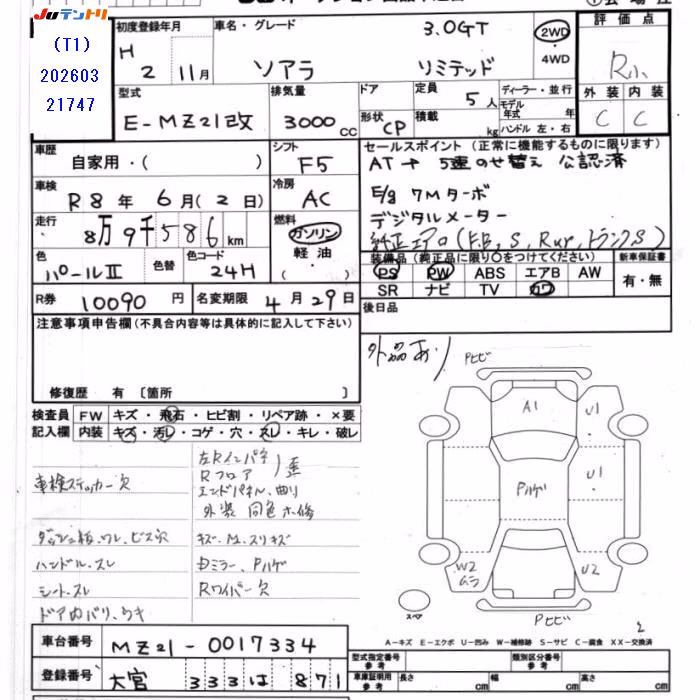 JUテントリ
(T1)
202603
21747
初度登録年月
H 2 11月
車名・グレード
3.0GT
ソアラ リミテッド
2WD
・
4WD
評価点
R小
外装 内装
C C
型式
E-MZ21改
排気量
3000cc
ドア
形状 CP
定員 5人
積載 kg
ディーラー・並行
モデル年式 年
ハンドル 左・右
車歴
自家用・( )
シフト
F5
セールスポイント (正常に機能するものに限ります)
AT→5速のせ替え 公認済
E/g 7Mターボ
デジタルメーター
純正エアロ(F.B, S, Rwg, トランクS)
車検
R8年6月(2日)
冷房
AC
走行
8万9千586km
燃料
ガソリン
軽油
( )
色
パールⅡ
色替
色コード
24H
装備品 (純正品に限り○をつけてください)
PS PW ABS エアB AW
SR ナビ TV カワ
新車保証書
有・無
R券 10090円
名変期限 4月29日
後日品
注意事項申告欄(不具合内容等は具体的に記入して下さい)
修復歴 有 〔箇所 〕
外品あり
検査員
記入欄
FW キズ・飛石・ヒビ割・リペア跡・×要
内装 キズ・汚レ・コゲ・穴・スレ・キレ・破レ
車検ステッカー欠
ダッシュ板、ワレ、ビス穴
ハンドル、スレ
シート、スレ
ドア内バリ、ウキ
左Rインパネ
Rフロア
歪
エンドパネル、曲り
外装 同色ホ修
キズ、M、スリキズ
Rワイパー欠
Pヒビ
A1
U1
Pハゲ
U1
W2
ムラ
U2
スペア
Pヒビ
A-キズ E-エクボ U-凹み W-補修跡 S-サビ C-腐食 XX-交換済
車台番号 MZ21-0017334
登録番号 大宮 333 は 871
型式指定番号
参考
類別区分番号
参考
車庫証明用
参考
長さ cm
幅 cm
高さ cm